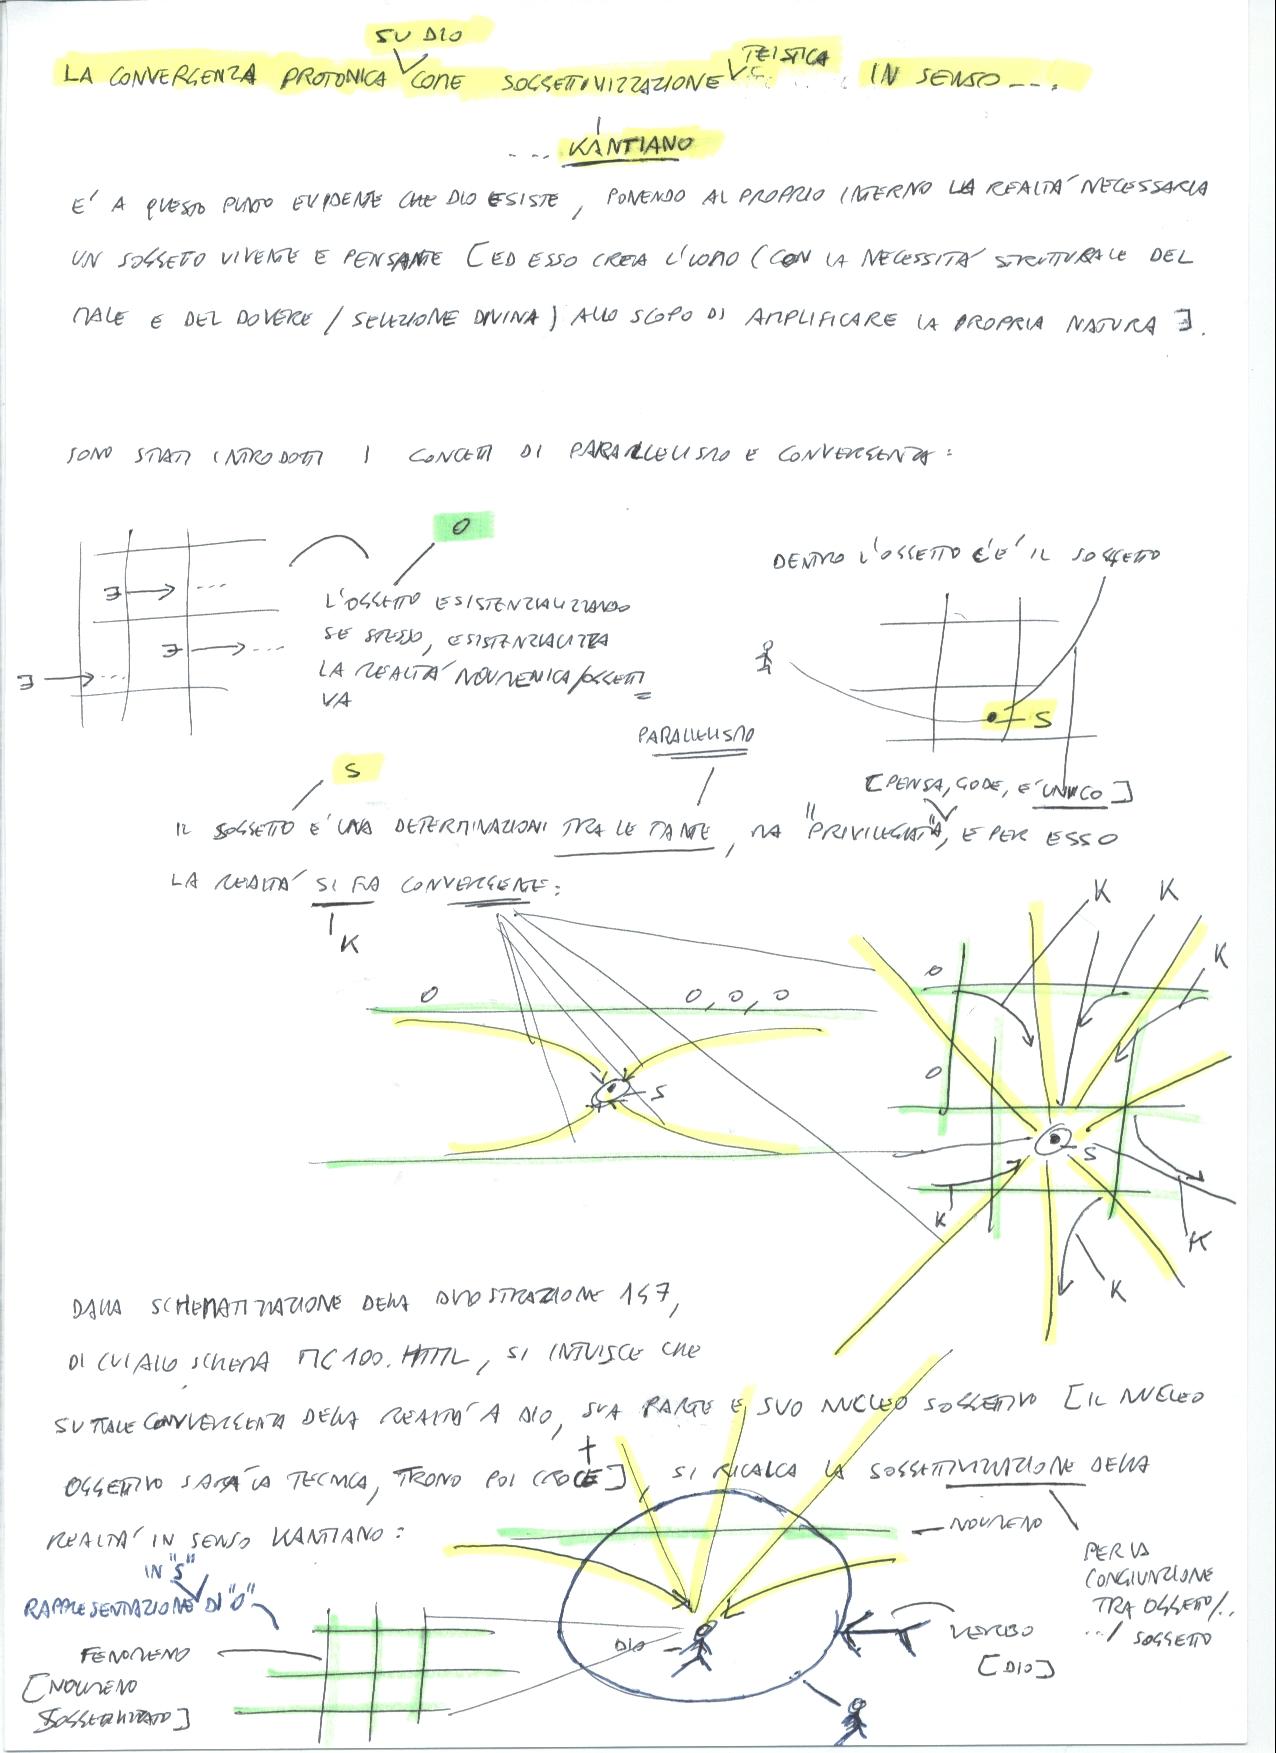 SU DIO
LA CONVERGENZA PROTONICA COME SOGGETTIVIZZAZIONE TEISTICA IN SENSO ....
... KANTIANO
E' A QUESTO PUNTO EVIDENTE CHE DIO ESISTE, PONENDO AL PROPRIO INTERNO LA REALTÀ NECESSARIA
UN SOGGETO VIVENTE E PENSANTE [ED ESSO CREA L'UOMO (CON LA NECESSITÀ STRUTTURALE DEL
MALE E DEL DOVERE / SELEZIONE DIVINA) ALLO SCOPO DI AMPLIFICARE LA PROPRIA NATURA ].
SONO STATI INTRODOTTI I CONCETTI DI PARALLELISMO E CONVERGENZA:
O
DENTRO L'OGGETTO C'E' IL SOGGETTO
∃ → ...
∃ → ...
∃ → ...
L'OGGETTO ESISTENZIALIZZANDO
SE STESSO, ESISTENZIALIZZA
LA REALTÀ NOUMENICA/OGGETTI=
VA
S
PARALLELISMO
[PENSA, GODE, E' UNICO]
S
IL SOGGETTO E' UNA DETERMINAZIONI TRA LE TANTE, MA "PRIVILEGIATA", E PER ESSO
LA REALTÀ SI FA CONVERGENTE:
K
K K
K
O
O O, O, O
O
S
S
K
K
K
DALLA SCHEMATIZZAZIONE DELLA DIMOSTRAZIONE 147,
DI CUI ALLO SCHEMA MC100.HTML, SI INTUISCE CHE
SU TALE CONVERGENZA DELLA REALTÀ A DIO, SUA PARTE E SUO NUCLEO SOGGETTIVO [IL NUCLEO
OGGETTIVO SARÀ LA TECNICA, TRONO POI CROCE], SI RICALCA LA SOGGETTIVIZZAZIONE DELLA
REALTÀ IN SENSO KANTIANO:
NOUMENO
IN "S"
RAPPRESENTAZIONE DI "O"
PER LA
CONGIUNZIONE
TRA OGGETTO/..
../ SOGGETTO
FENOMENO
[NOUMENO
SOGGETTIVATO]
DIO
VERBO
[DIO]